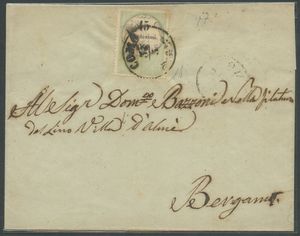 17.
15
COMO
Al Sigr Domco Bazzoni nella filatura
del lino Villa d'Almè
Bergamo